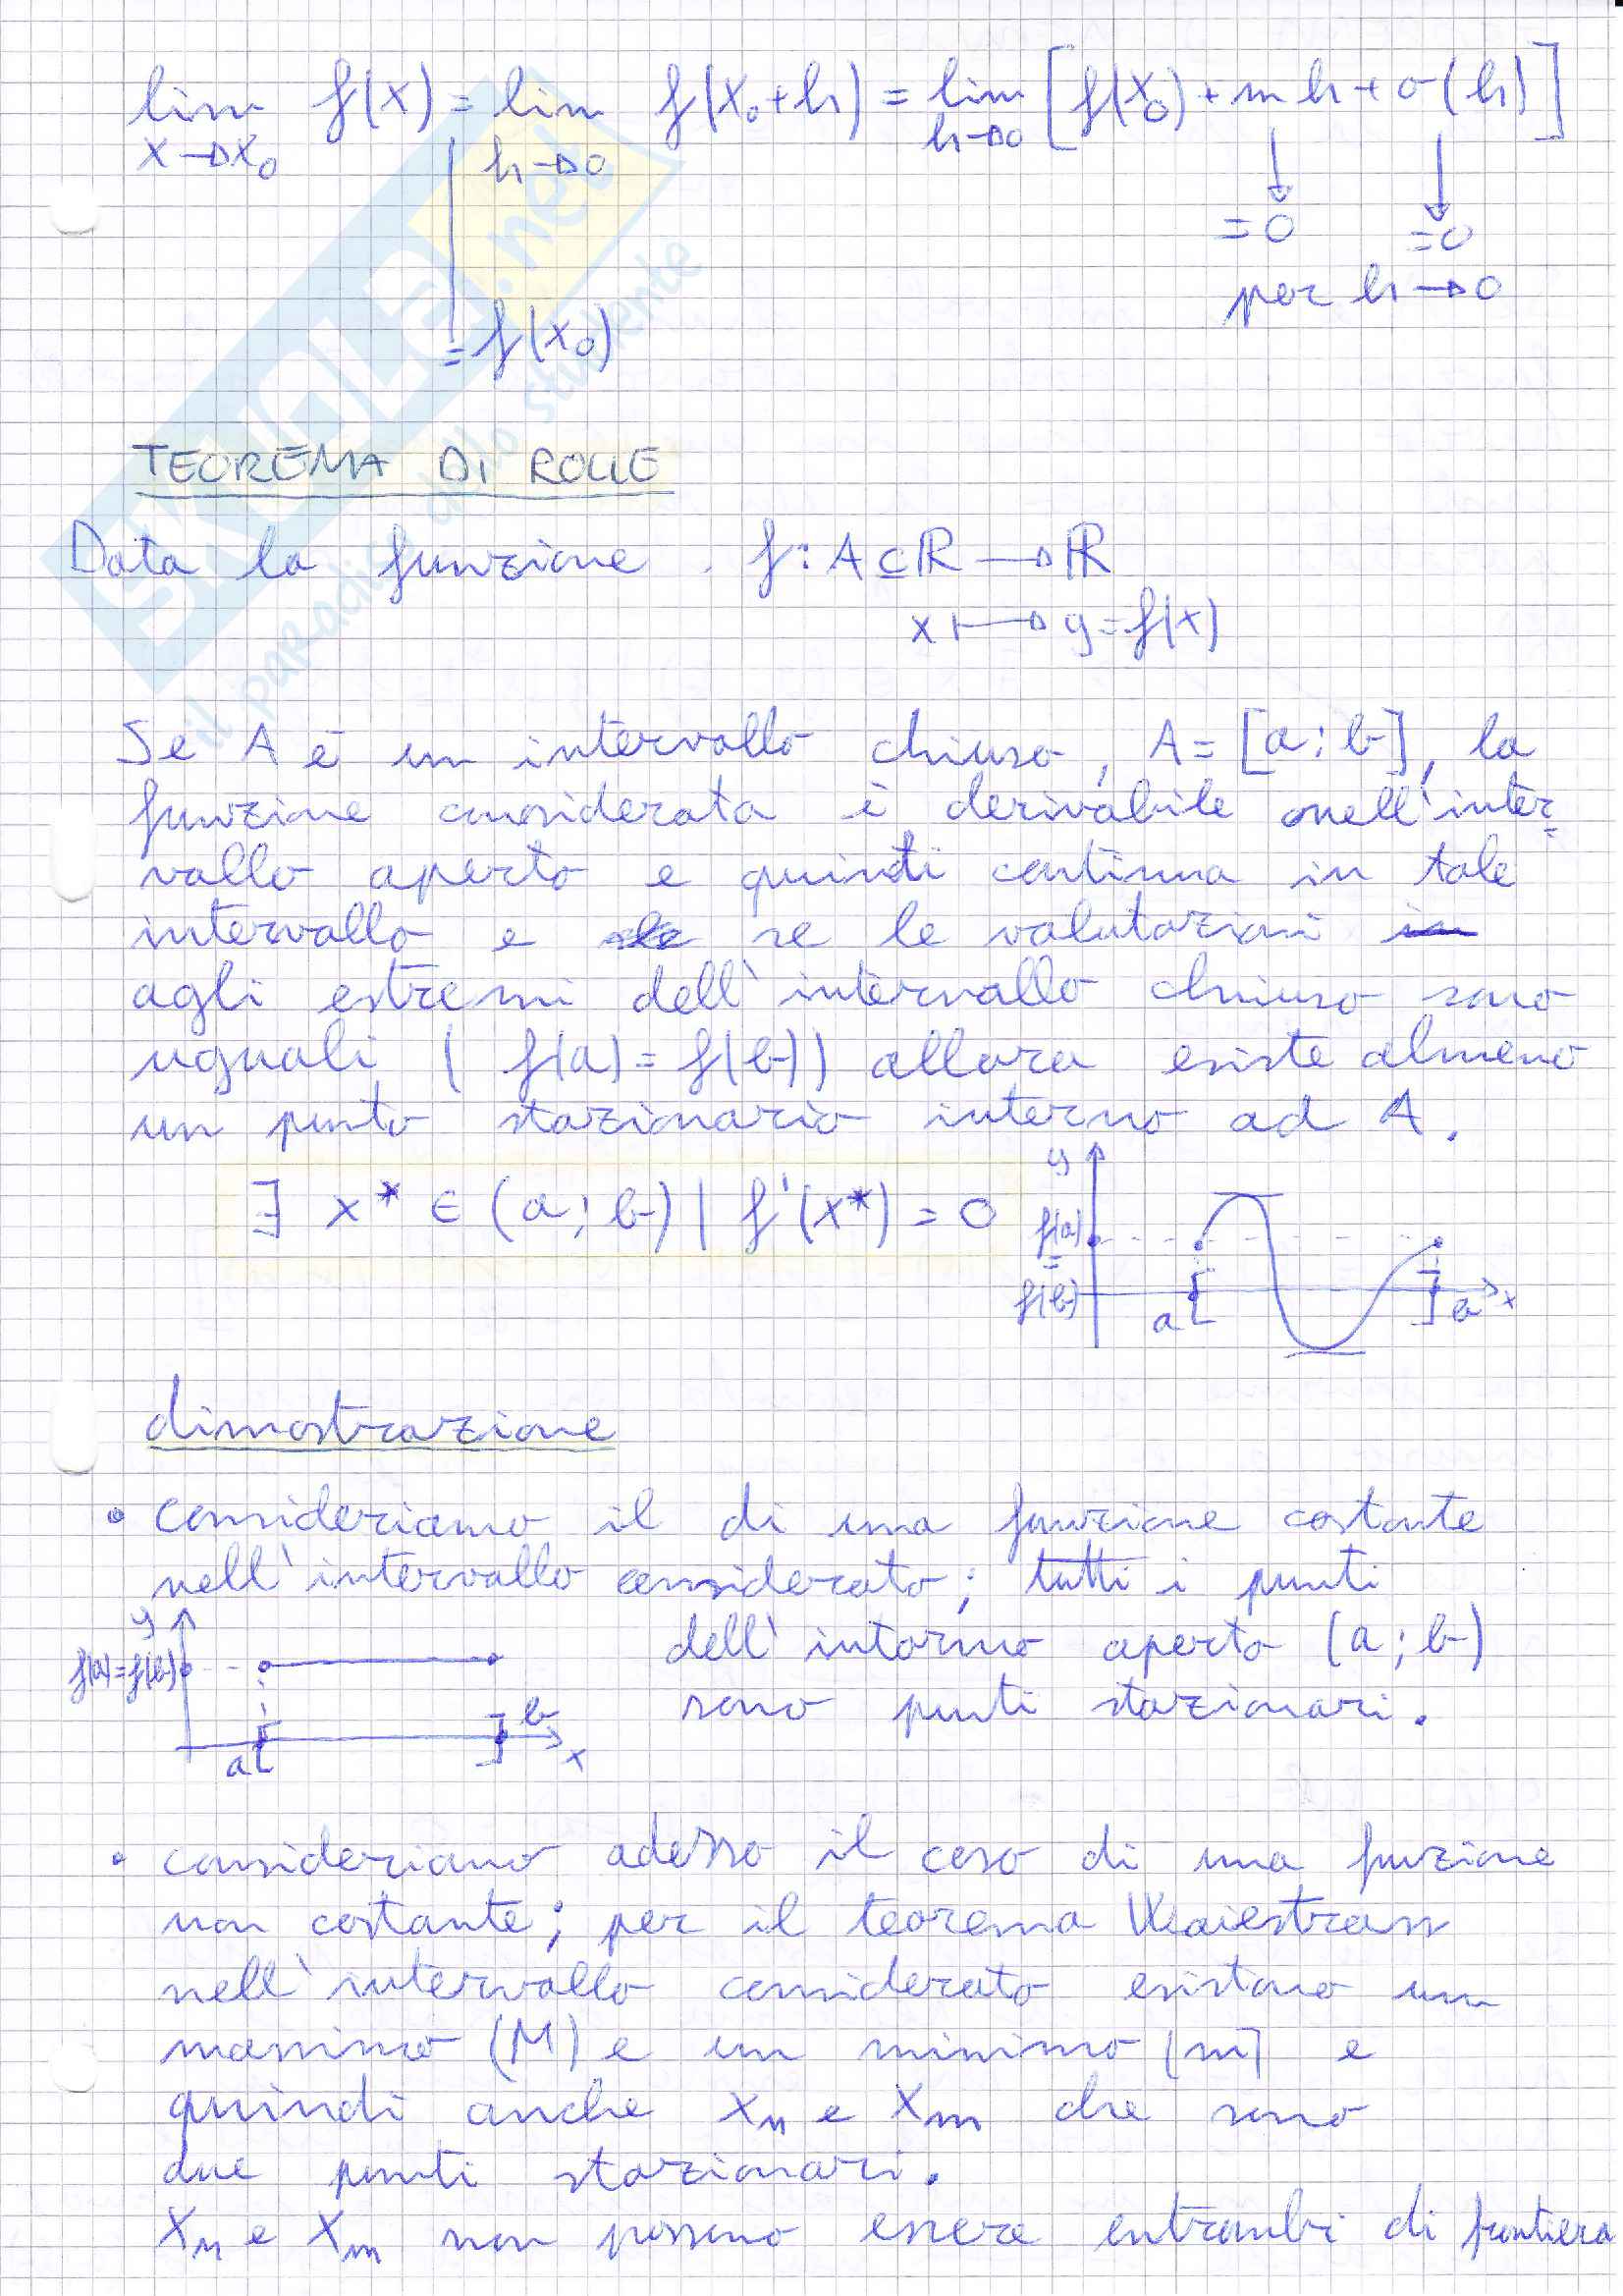 lim f(x) = lim f(x₀+h) = lim [f(x₀) + mh + o(h)]
x→x₀ h→0 h→0
=0 =0
per h→0
= f(x₀)
SKUOLA.net
il paradiso dello studente
TEOREMA DI ROLLE
Data la funzione . f: A⊆ℝ → ℝ
x ↦ y=f(x)
Se A è un intervallo chiuso, A = [a;b], la
funzione considerata è derivabile nell'inter-
vallo aperto e quindi continua in tale
intervallo e se le valutazioni
agli estremi dell'intervallo chiuso sono
uguali ( f(a)=f(b)) allora esiste almeno
un punto stazionario interno ad A.
∃ x* ∈ (a;b) | f'(x*) = 0
y
f(a)
=
f(b)
a [ ] b x
dimostrazione
• consideriamo il di una funzione costante
nell'intervallo considerato; tutti i punti
dell'intorno aperto (a;b)
sono punti stazionari.
y
f(a)=f(b)
a [ ] b x
• consideriamo adesso il caso di una funzione
non costante; per il teorema Waiestrass
nell'intervallo considerato esistono un
massimo (M) e un minimo (m) e
quindi anche x_M e x_m che sono
due punti stazionari.
x_M e x_m non possono essere entrambi di frontiera